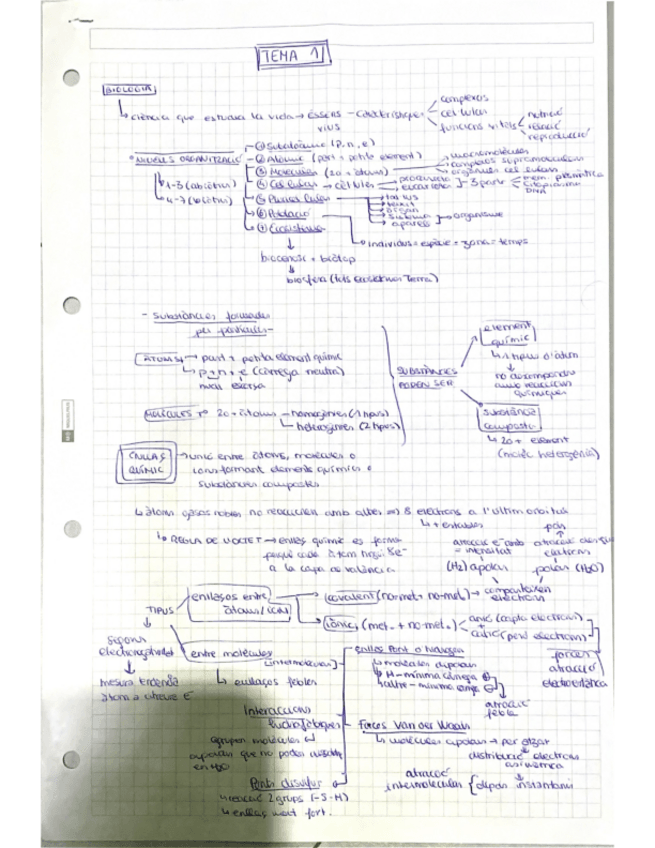 TEMA 1
BIOLOGIA
ciència que estudia la vida → éssers vius - característiques
complexos
cel·lules
funcions vitals
nutrició
relació
reproducció
NIVELLS ORGANITZACIÓ
1-3 (abiòtics)
4-7 (biòtics)
① Subatòmic (p, n, e)
② Atòmic (part + petita element)
③ Molecular (2 o + àtoms)
macromolècules
complexos supramoleculars
orgànuls cel·lulars
④ Cel·lular → cèl·lules
procariota
eucariota
3 parts
mem. plasmàtica
citoplasma
DNA
⑤ Pluricel·lular
teixit
òrgan
sistema
aparell
organisme
⑥ Població
individus = espècie = zona = temps
⑦ Ecosistema
biocenosi + biòtop
biosfera (tots ecosistemes Terra)
- Substàncies formades
per partícules -
ÀTOMS → part + petita element químic
p + n + e (càrrega neutra)
MOLÈCULES → 2 o + àtoms
homogènies (1 tipus)
heterogènies (2 tipus)
SUBSTÀNCIES
PODEN SER
element
químic
1 tipus d'àtom
no descompondre
amb reaccions
químiques
substància
composta
2 o + element
(molèc heterogènia)
ENLLAÇ
QUÍMIC
unió entre àtoms, molècules o
ions formant elements químics o
substàncies compostes
àtoms gasos nobles no reaccionen amb altres => 8 electrons a l'últim orbital
+ estables
REGLA DE L'OCTET → enllaç químic es forma
perquè cada àtom tingui 8e⁻
a la capa de valència
atracció e⁻ amb
= intensitat
(H₂) apolar
atracció
electrons
polar (H₂O)
TIPUS
enllaços entre
àtoms/ions
covalent (no-met + no-met) → comparteixen
electrons
iònic (met + no-met)
anió (capta electrons)
catió (perd electrons)
forces
atracció
electrostàtica
segons
electronegativitat
mesura tendència
àtom a atreure e⁻
entre molècules
(intermolecular)
enllaços febles
enllaç Pont d'hidrogen
molècules dipolars
H - mínima càrrega ⊕
altre - mínima càrrega ⊖
atracció
feble
Interaccions
hidrofòbiques
agrupen molècules
apolars que no poden dissoldre
en H₂O
Forces Van der Waals
molècules apolars → per atzar
distribució electrons
asimètrica
atracció
intermolecular
dipol instantani
Ponts disulfur
reacció 2 grups (-S-H)
enllaç molt fort.